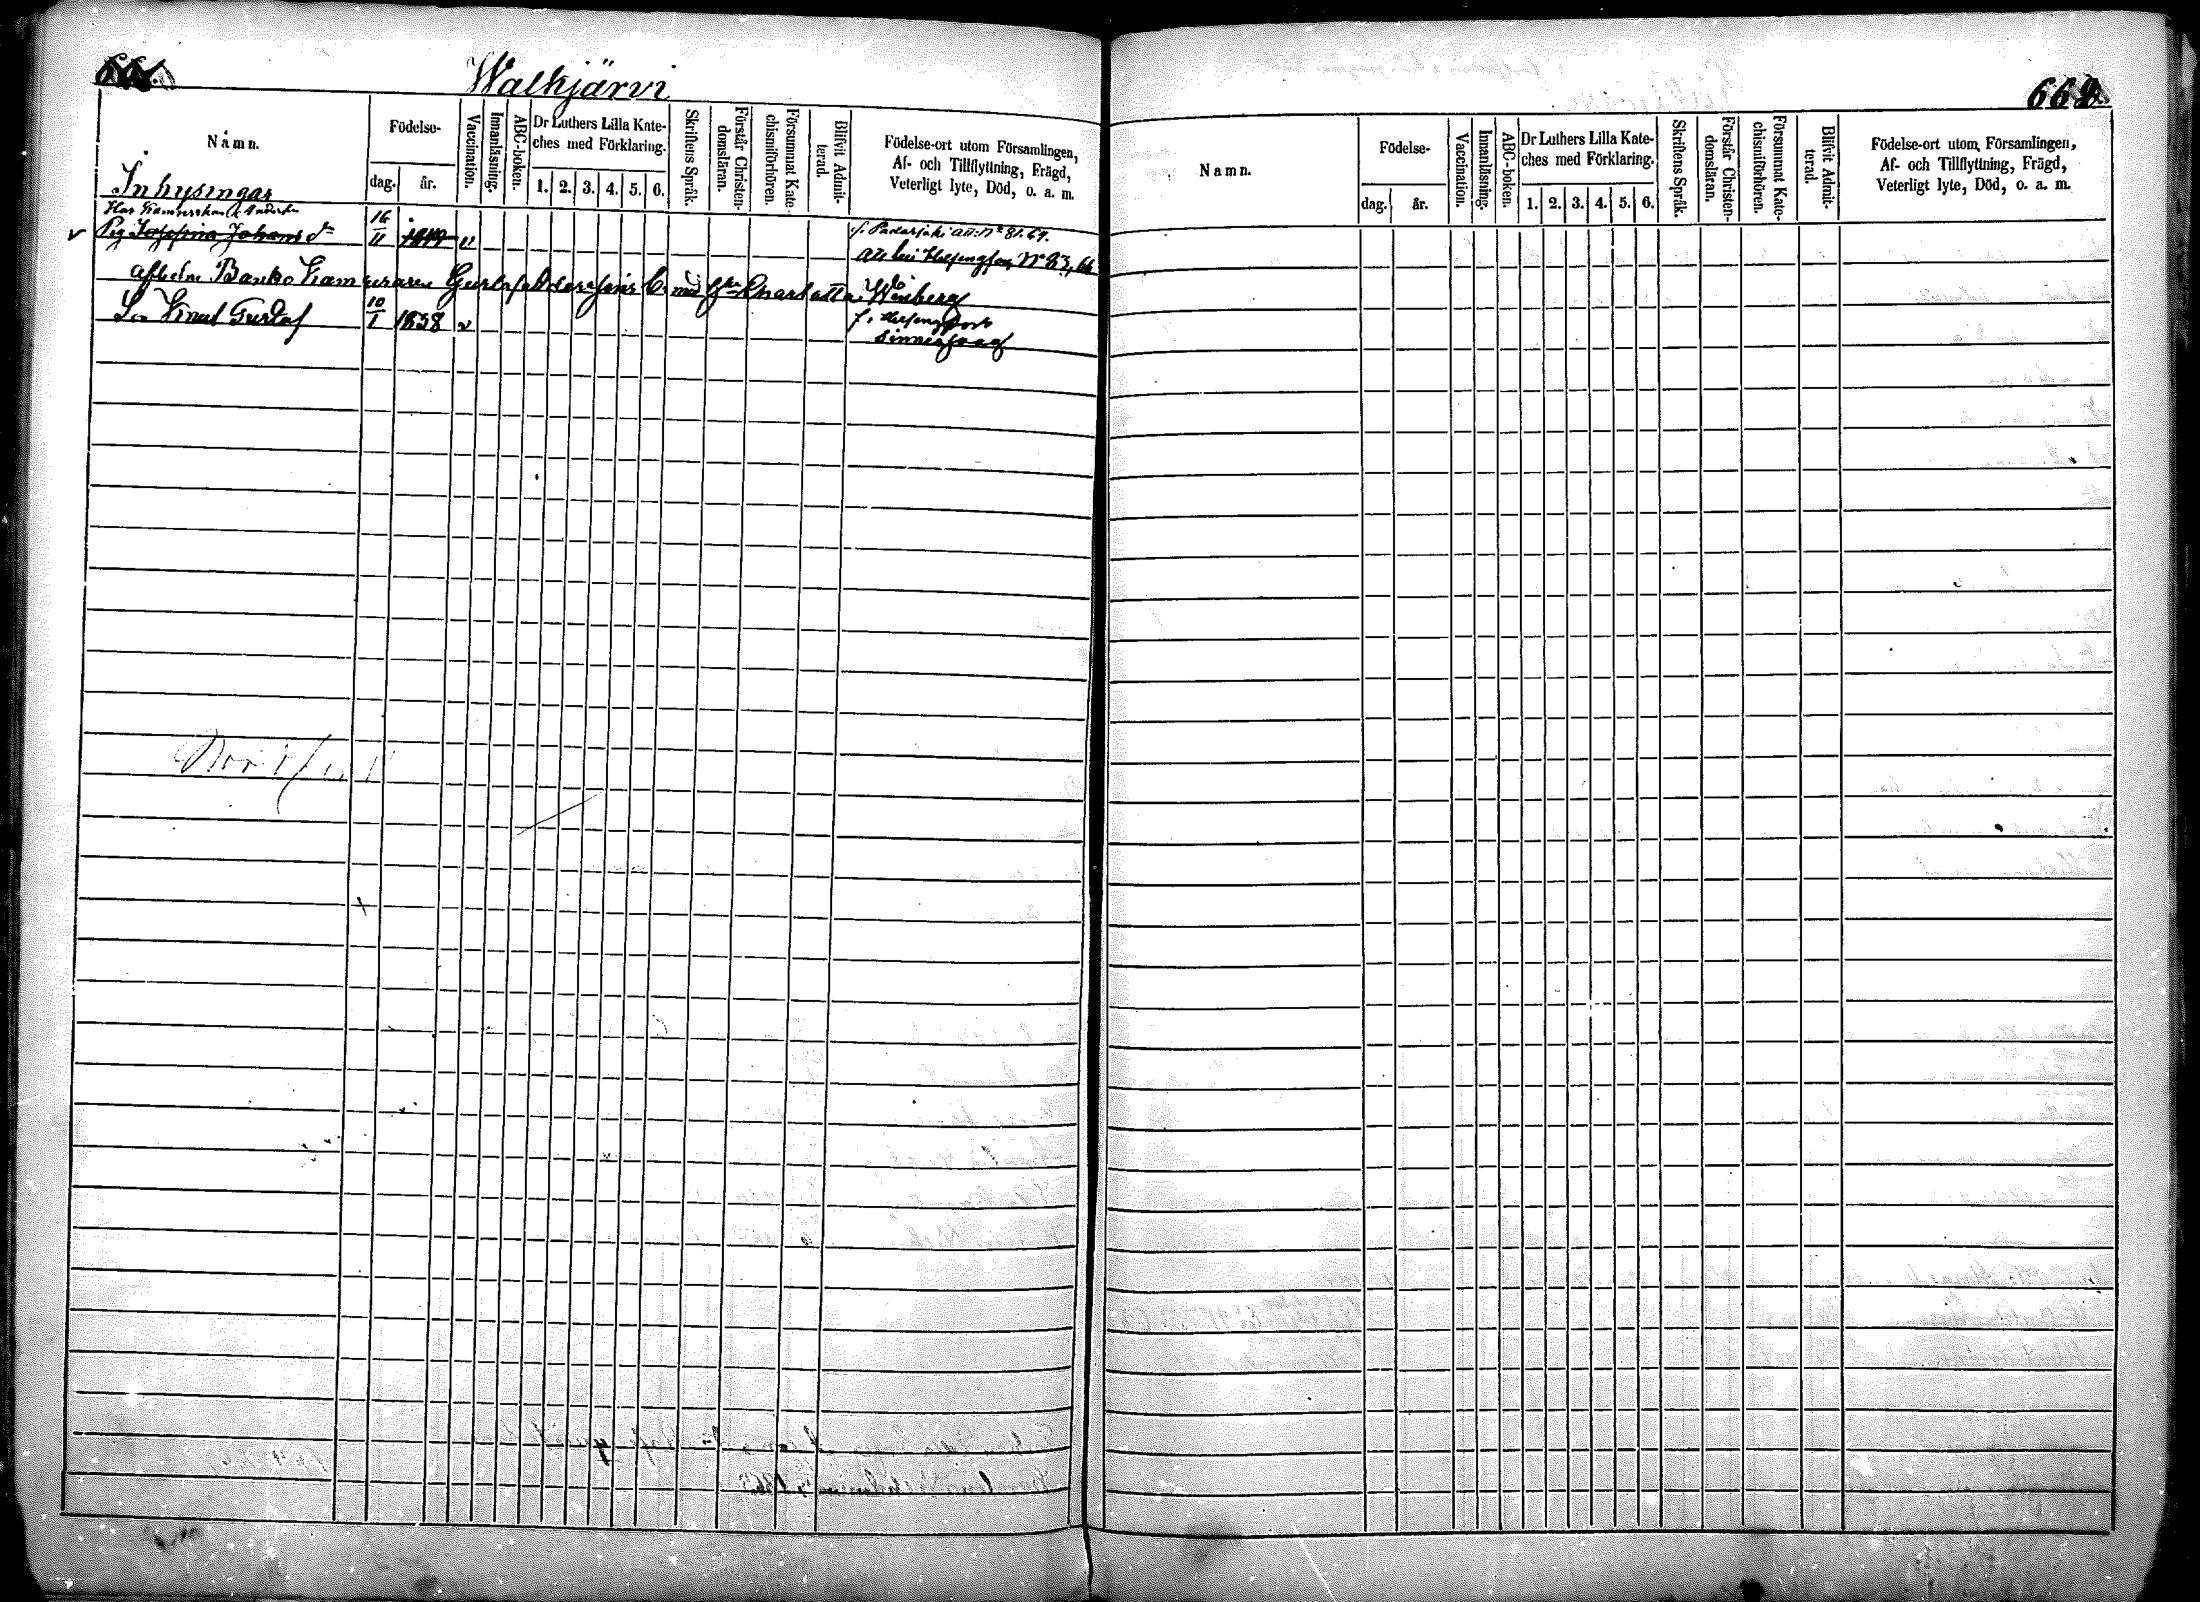 Walkjärvi
Namn.
Födelse-
dag.
år.
Vaccination.
Innanläsning.
ABC-boken.
Dr Luthers Lilla Kate-
ches med Förklaring.
1. 2. 3. 4. 5. 6.
Skriftens Språk.
Förstår Christen-
domsläran.
Försummat Kate-
chismiförhören.
Blifvit Admit-
terad.
Födelse-ort utom Församlingen,
Af- och Tillflyttning, Frägd,
Veterligt lyte, Död, o. a. m.
Inhysingar
Hos
Pig Josefina Johans dr 16/11 v
f. Padasjoki att. No 81. 61.
No 83, 66
Banko Kamreraren Charlotta Winberg
Son Knut Gustaf 10/1 1838 v
f. i Helsingfors
sinnessvag
662
Namn.
Födelse-
dag.
år.
Vaccination.
Innanläsning.
ABC-boken.
Dr Luthers Lilla Kate-
ches med Förklaring.
1. 2. 3. 4. 5. 6.
Skriftens Språk.
Förstår Christen-
domsläran.
Försummat Kate-
chismiförhören.
Blifvit Admit-
terad.
Födelse-ort utom Församlingen,
Af- och Tillflyttning, Frägd,
Veterligt lyte, Död, o. a. m.